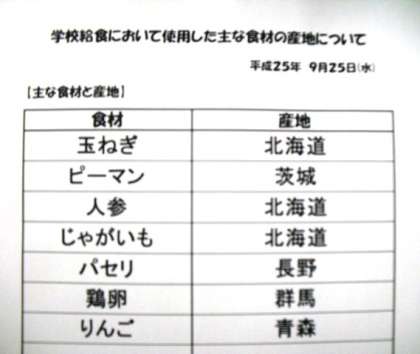 学校給食において使用した主な食材の産地について
平成25年 9月25日(水)
【主な食材と産地】
食材 産地
玉ねぎ 北海道
ピーマン 茨城
人参 北海道
じゃがいも 北海道
パセリ 長野
鶏卵 群馬
りんご 青森